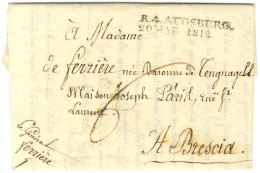 R.4. AUGSBURG.
20 MAI 1812.
À Madame
de ferrière née Baronne de Tengnagell
Maison Joseph Paris, Ruë St.
Laurent
À Brescia
Le Général
ferrière